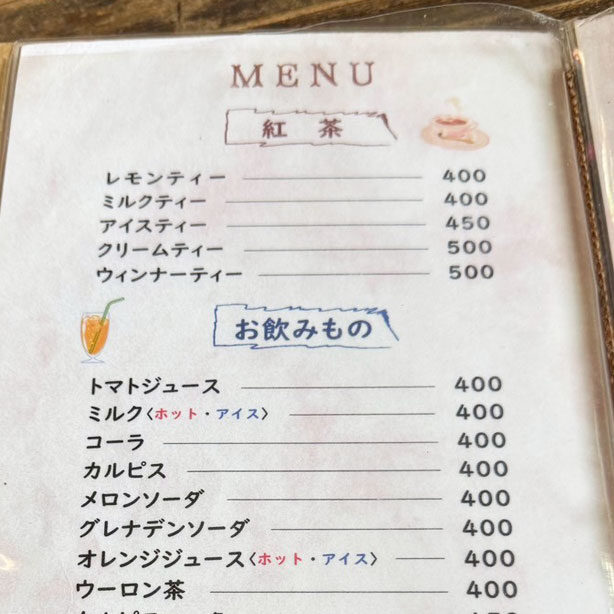 MENU
紅 茶
レモンティー 400
ミルクティー 400
アイスティー 450
クリームティー 500
ウィンナーティー 500
お飲みもの
トマトジュース 400
ミルク〈ホット・アイス〉 400
コーラ 400
カルピス 400
メロンソーダ 400
グレナデンソーダ 400
オレンジジュース〈ホット・アイス〉 400
ウーロン茶 400